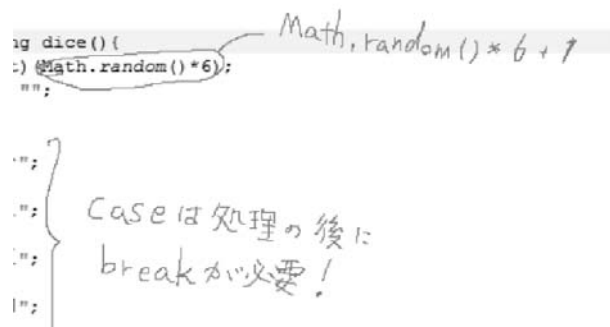 ng dice(){
Math.random()*6+1
t) (Math.random()*6);
"";
";
";
caseは処理の後に
";
breakが必要!
";